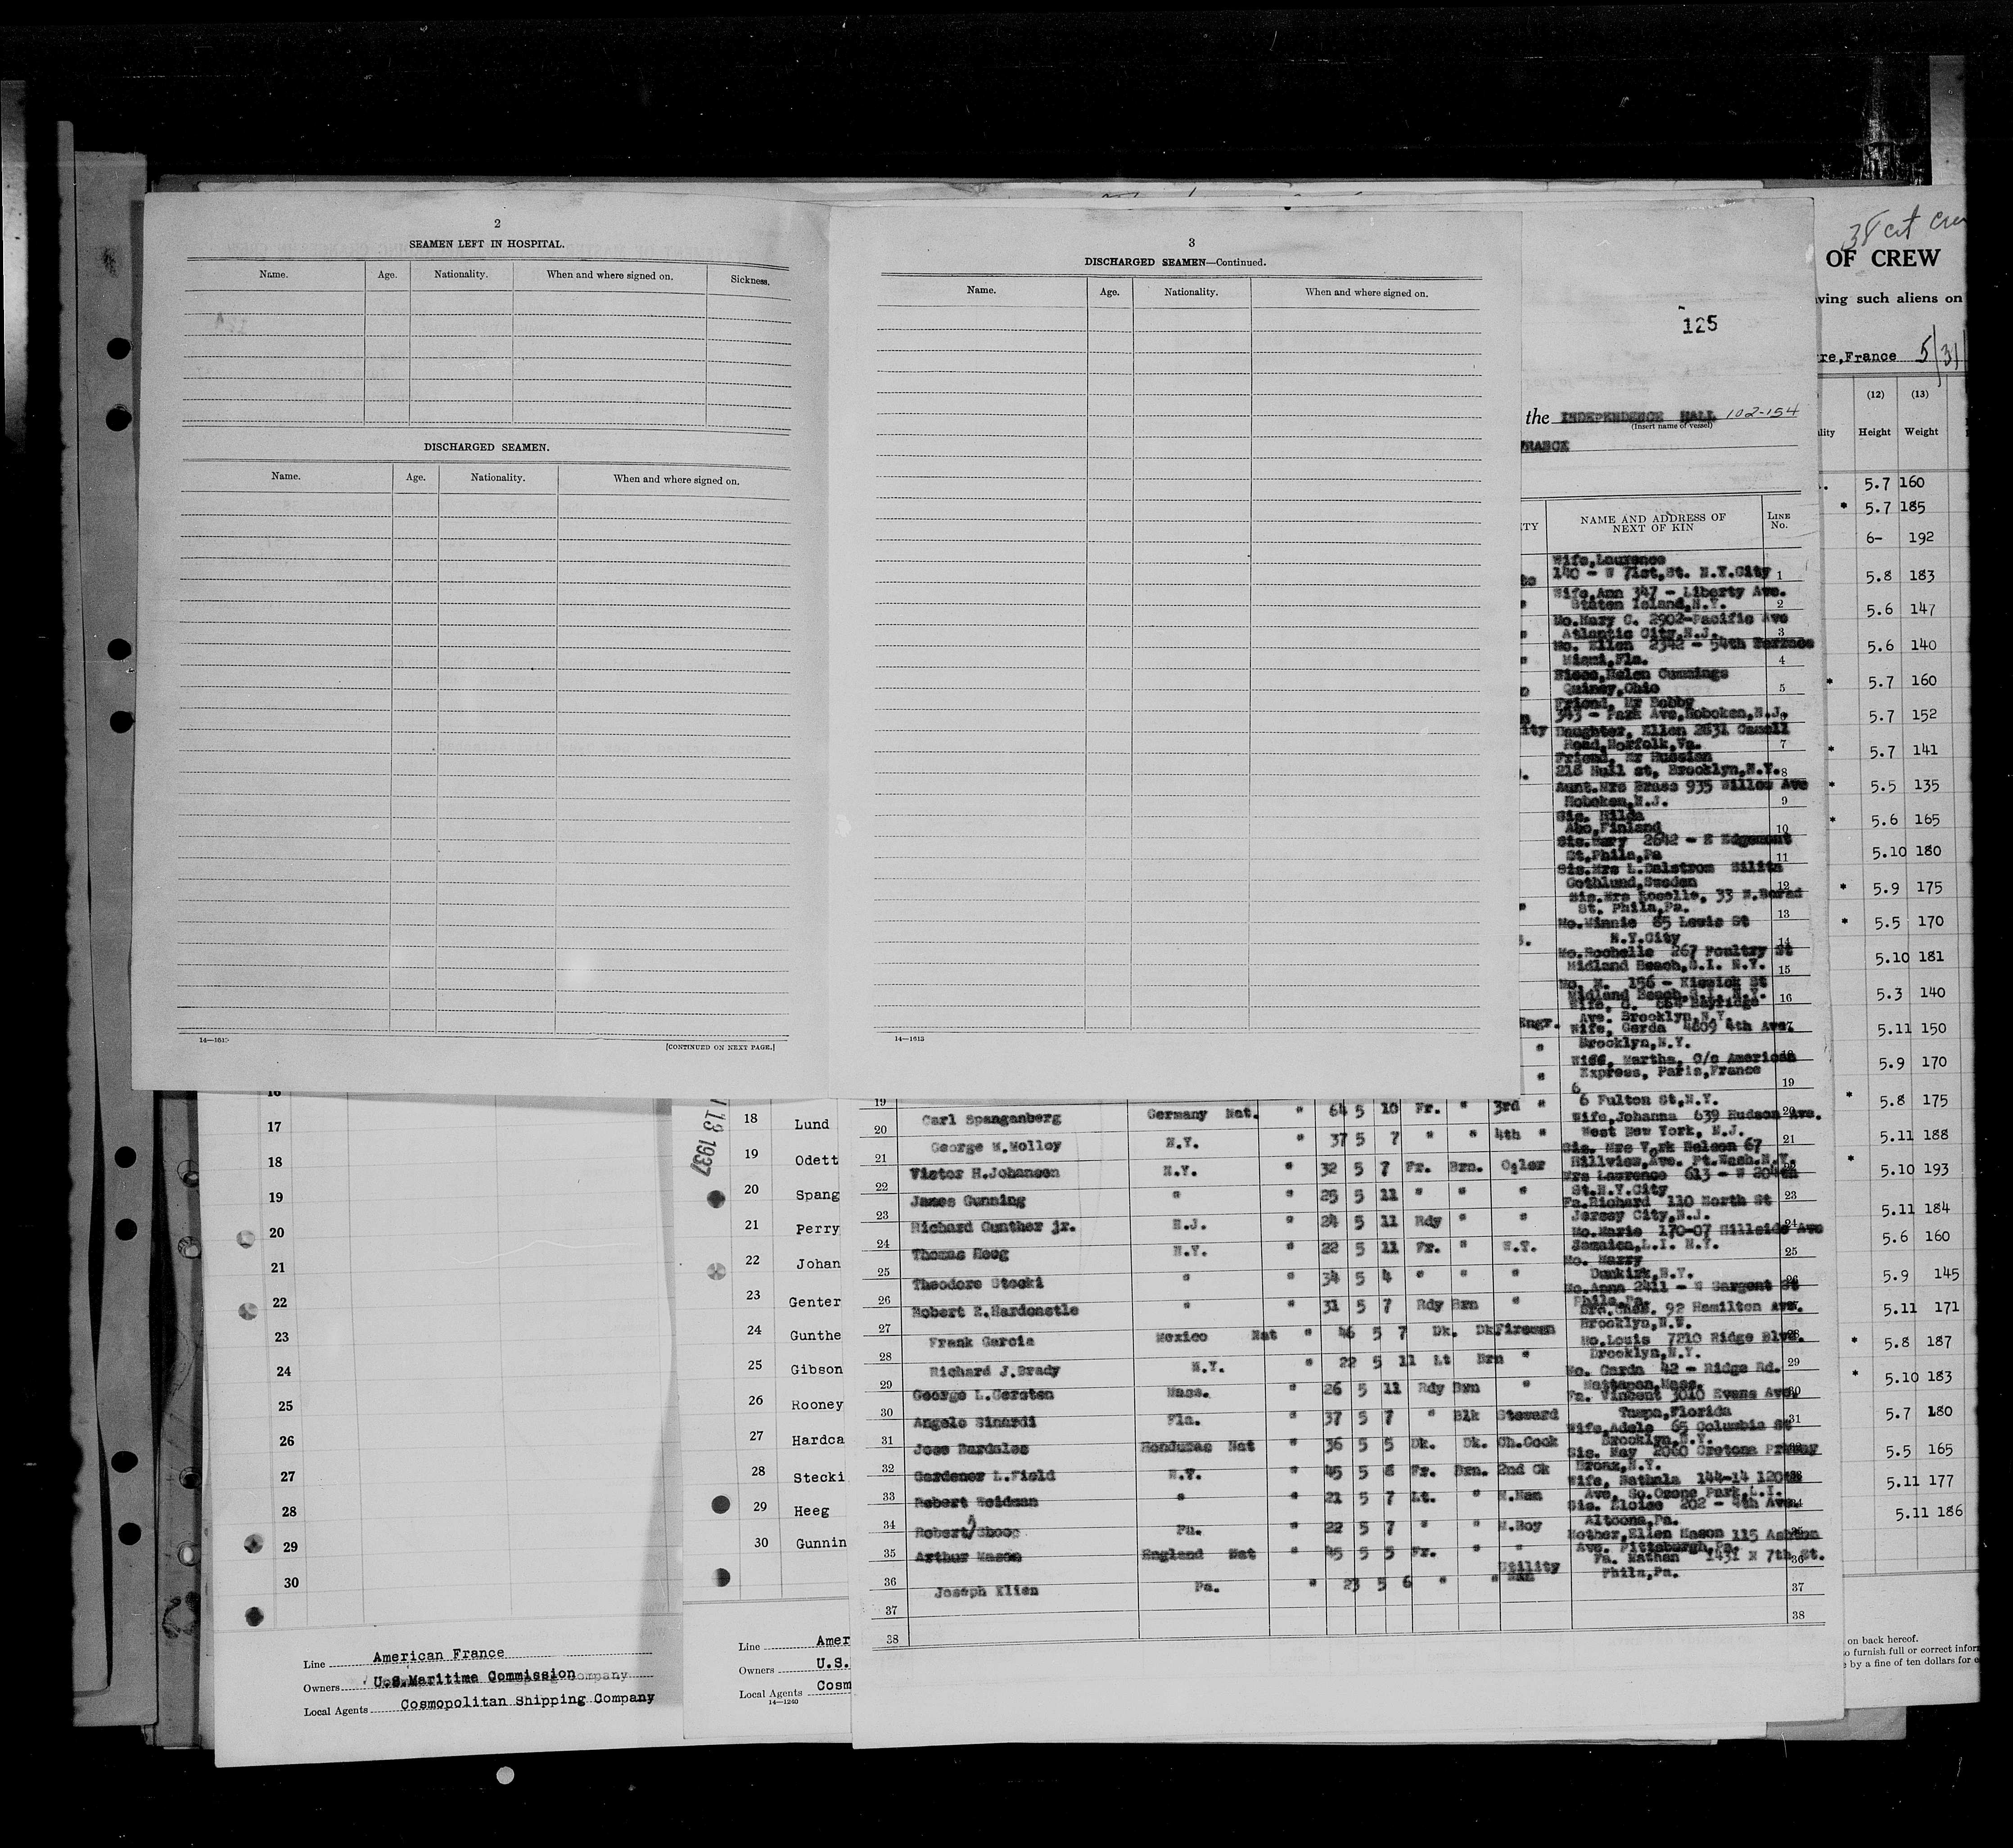 2
SEAMEN LEFT IN HOSPITAL.
Name. Age. Nationality. When and where signed on. Sickness.
DISCHARGED SEAMEN.
Name. Age. Nationality. When and where signed on.
[CONTINUED ON NEXT PAGE.]
3
DISCHARGED SEAMEN—Continued.
Name. Age. Nationality. When and where signed on.
14—1613
125
the INDEPENDENCE HALL 102-154
(Insert name of vessel)
FRANCE
NAME AND ADDRESS OF NEXT OF KIN LINE No.
Wife, Laurence
140 - W 71st, St. N.Y.City 1
Wife, Ann 347 - Liberty Ave.
Staten Island, N.Y. 2
Mo. Mary C. 2902-Pacific Ave
Atlantic City, N.J. 3
Mo. Ellen 2342 - 54th Terrace
Miami, Fla. 4
Niece, Helen Cummings
Quincy, Ohio 5
Friend, Mr Bobby
343 - Park Ave, Hoboken, N.J.
Daughter, Ellen 2631
Road, Norfolk, Va. 7
Friend, Mr Hussian
218 Hull st, Brooklyn, N.Y. 8
Aunt. Mrs Brass 935 Willow Ave
Hoboken, N.J. 9
Sis. Hilda
Abo, Finland 10
Sis. Mary 2642 - E Edgemont
St. Phila, Pa 11
Sis. Mrs L. Dalstrom
Gothlund, Sweden 12
Sis. Mrs Roselle, 33 N. Borad
St. Phila, Pa. 13
Mo. Minnie 85 Lewis St
N.Y.City 14
Mo. Rochelle 267 Poultry St
Midland Beach, S.I. N.Y. 15
Mo. M. 156 - Kiswick St
Midland Beach, S.I. N.Y. 16
Ave. Brooklyn, N.Y.
Engr. Wife, Gerda 4809 4th Ave.
Brooklyn, N.Y.
Wife, Martha, C/o American
Express, Paris, France 19
6 Fulton St, N.Y.
Wife, Johanna 639 Hudson Ave.
West New York, N.J. 21
Sis. Mrs York Nelson 67
Hillview, Ave. Pt. Wash. N.Y.
Mrs Lawrence 613 - W 204th
St. N.Y.City 23
Fa. Richard 110 North St
Jersey City, N.J. 24
Mo. Marie 170-07 Hillside Ave
Jamaica, L.I. N.Y. 25
Mo. Marry
Dunkirk, N.Y. 26
Mo. Anna 2411 - W Sargent St
Phila, Pa.
Bro. Chas. 92 Hamilton Ave.
Brooklyn, N.Y.
Mo. Louis 7210 Ridge Blv.
Brooklyn, N.Y. 29
Mo. Garda 42 - Ridge Rd.
Mattapan, Mass. 30
Fa. Vincent 3010 Evans Ave.
Tampa, Florida 31
Wife, Adele 65 Columbia St
Brooklyn, N.Y.
Sis. May 2060 Cretona
Bronx, N.Y.
Wife, Nathala 144-14 120th
Ave, So. Ozone Park, L.I.
Sis. Eloise 202 - 4th Ave.
Altoona, Pa.
Mother, Ellen Mason 115 Ashton
Ave. Pittsburgh, Pa.
Fa. Nathan 1431 N 7th St. 36
Phila, Pa. 37
38
19 Carl Spanganberg Germany Nat. " 64 5 10 Fr. " 3rd "
20 George M. Molloy N.Y. " 37 5 7 " " 4th "
21 Victor H. Johansen N.Y. " 32 5 7 Fr. Brn. Oiler
22 James Gunning " " 25 5 11 " " "
23 Richard Gunther jr. N.J. " 24 5 11 Rdy " "
24 Thomas Heeg N.Y. " 22 5 11 Fr. " W.T.
25 Theodore Stecki " " 34 5 4 " " "
26 Robert E. Hardcastle " " 31 5 7 Rdy Brn "
27 Frank Garcia Mexico Nat " 46 5 7 Dk. Dk Fireman
28 Richard J. Brady N.Y. " 22 5 11 Lt Brn "
29 George L. Gersten Mass. " 26 5 11 Rdy Brn "
30 Angelo Sinardi Fla. " 37 5 7 " Blk Steward
31 Jose Bardales Honduras Nat " 36 5 5 Dk. Dk. Ch. Cook
32 Gardener L. Field N.Y. " 45 5 8 Fr. Brn. 2nd Ck
33 Robert Weidman " " 21 5 7 Lt. " M. Man
34 Robert Shoop Pa. " 22 5 7 " " M. Boy
35 Arthur Mason England Nat " 45 5 5 Fr. " "
36 Joseph Klien Pa. " 23 5 6 " " Utility Man
37
38
38 cit crew
OF CREW
ving such aliens on
re, France 5/31
(12) (13)
Height Weight
5.7 160
* 5.7 185
6- 192
5.8 183
5.6 147
5.6 140
* 5.7 160
5.7 152
* 5.7 141
* 5.5 135
* 5.6 165
5.10 180
* 5.9 175
* 5.5 170
5.10 181
5.3 140
5.11 150
5.9 170
* 5.8 175
5.11 188
* 5.10 193
5.11 184
5.6 160
5.9 145
5.11 171
* 5.8 187
* 5.10 183
5.7 180
5.5 165
5.11 177
5.11 186
on back hereof.
o furnish full or correct inform
e by a fine of ten dollars for
16
17
18
19
20
21
22
23
24
25
26
27
28
29
30
Line American France
Owners U.S.Maritime Commission
Local Agents Cosmopolitan Shipping Company
13 1937
18 Lund
19 Odett
20 Spang
21 Perry
22 Johan
23 Genter
24 Gunthe
25 Gibson
26 Rooney
27 Hardca
28 Stecki
29 Heeg
30 Gunnin
Line Amer
Owners U.S.
Local Agents Cosm
14—1240